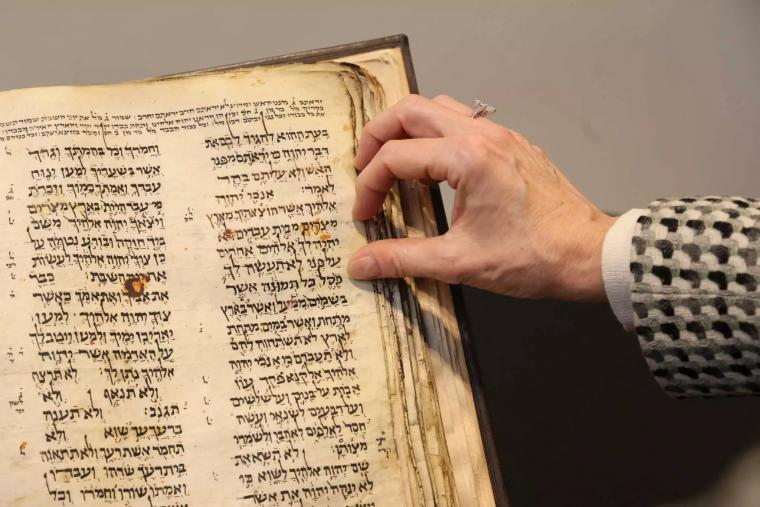 בעת ההוא להגיד לכם את
דבר יהוה כי יראתם מפני
האש ולא עליתם בהר
לאמר׃ אנכי יהוה
אלהיך אשר הוצאתיך מארץ
מצרים מבית עבדים לא
יהיה לך אלהים אחרים
על פני לא תעשה לך
פסל כל תמונה אשר
בשמים ממעל ואשר בארץ
מתחת ואשר במים מתחת
לארץ לא תשתחוה להם
ולא תעבדם כי אנכי יהוה
אלהיך אל קנא פקד עון
אבות על בנים ועל שלשים
ועל רבעים לשנאי ועשה
חסד לאלפים לאהבי ולשמרי
מצותו׃ לא תשא את
שם יהוה אלהיך לשוא כי
לא ינקה יהוה את אשר
וחמרך וכל בהמתך וגרך
אשר בשעריך למען ינוח
עבדך ואמתך כמוך וזכרת
כי עבד היית בארץ מצרים
ויצאך יהוה אלהיך משם
ביד חזקה ובזרע נטויה על
כן צוך יהוה אלהיך לעשות
את יום השבת׃ כבד
את אביך ואת אמך כאשר
צוך יהוה אלהיך למען
יאריכן ימיך ולמען ייטב לך
על האדמה אשר יהוה
אלהיך נתן לך׃ לא תרצח
ולא תנאף ולא
תגנב׃ ולא תענה
ברעך עד שוא ולא
תחמד אשת רעך ולא תתאוה
בית רעך שדהו ועבדו
ואמתו שורו וחמרו וכל